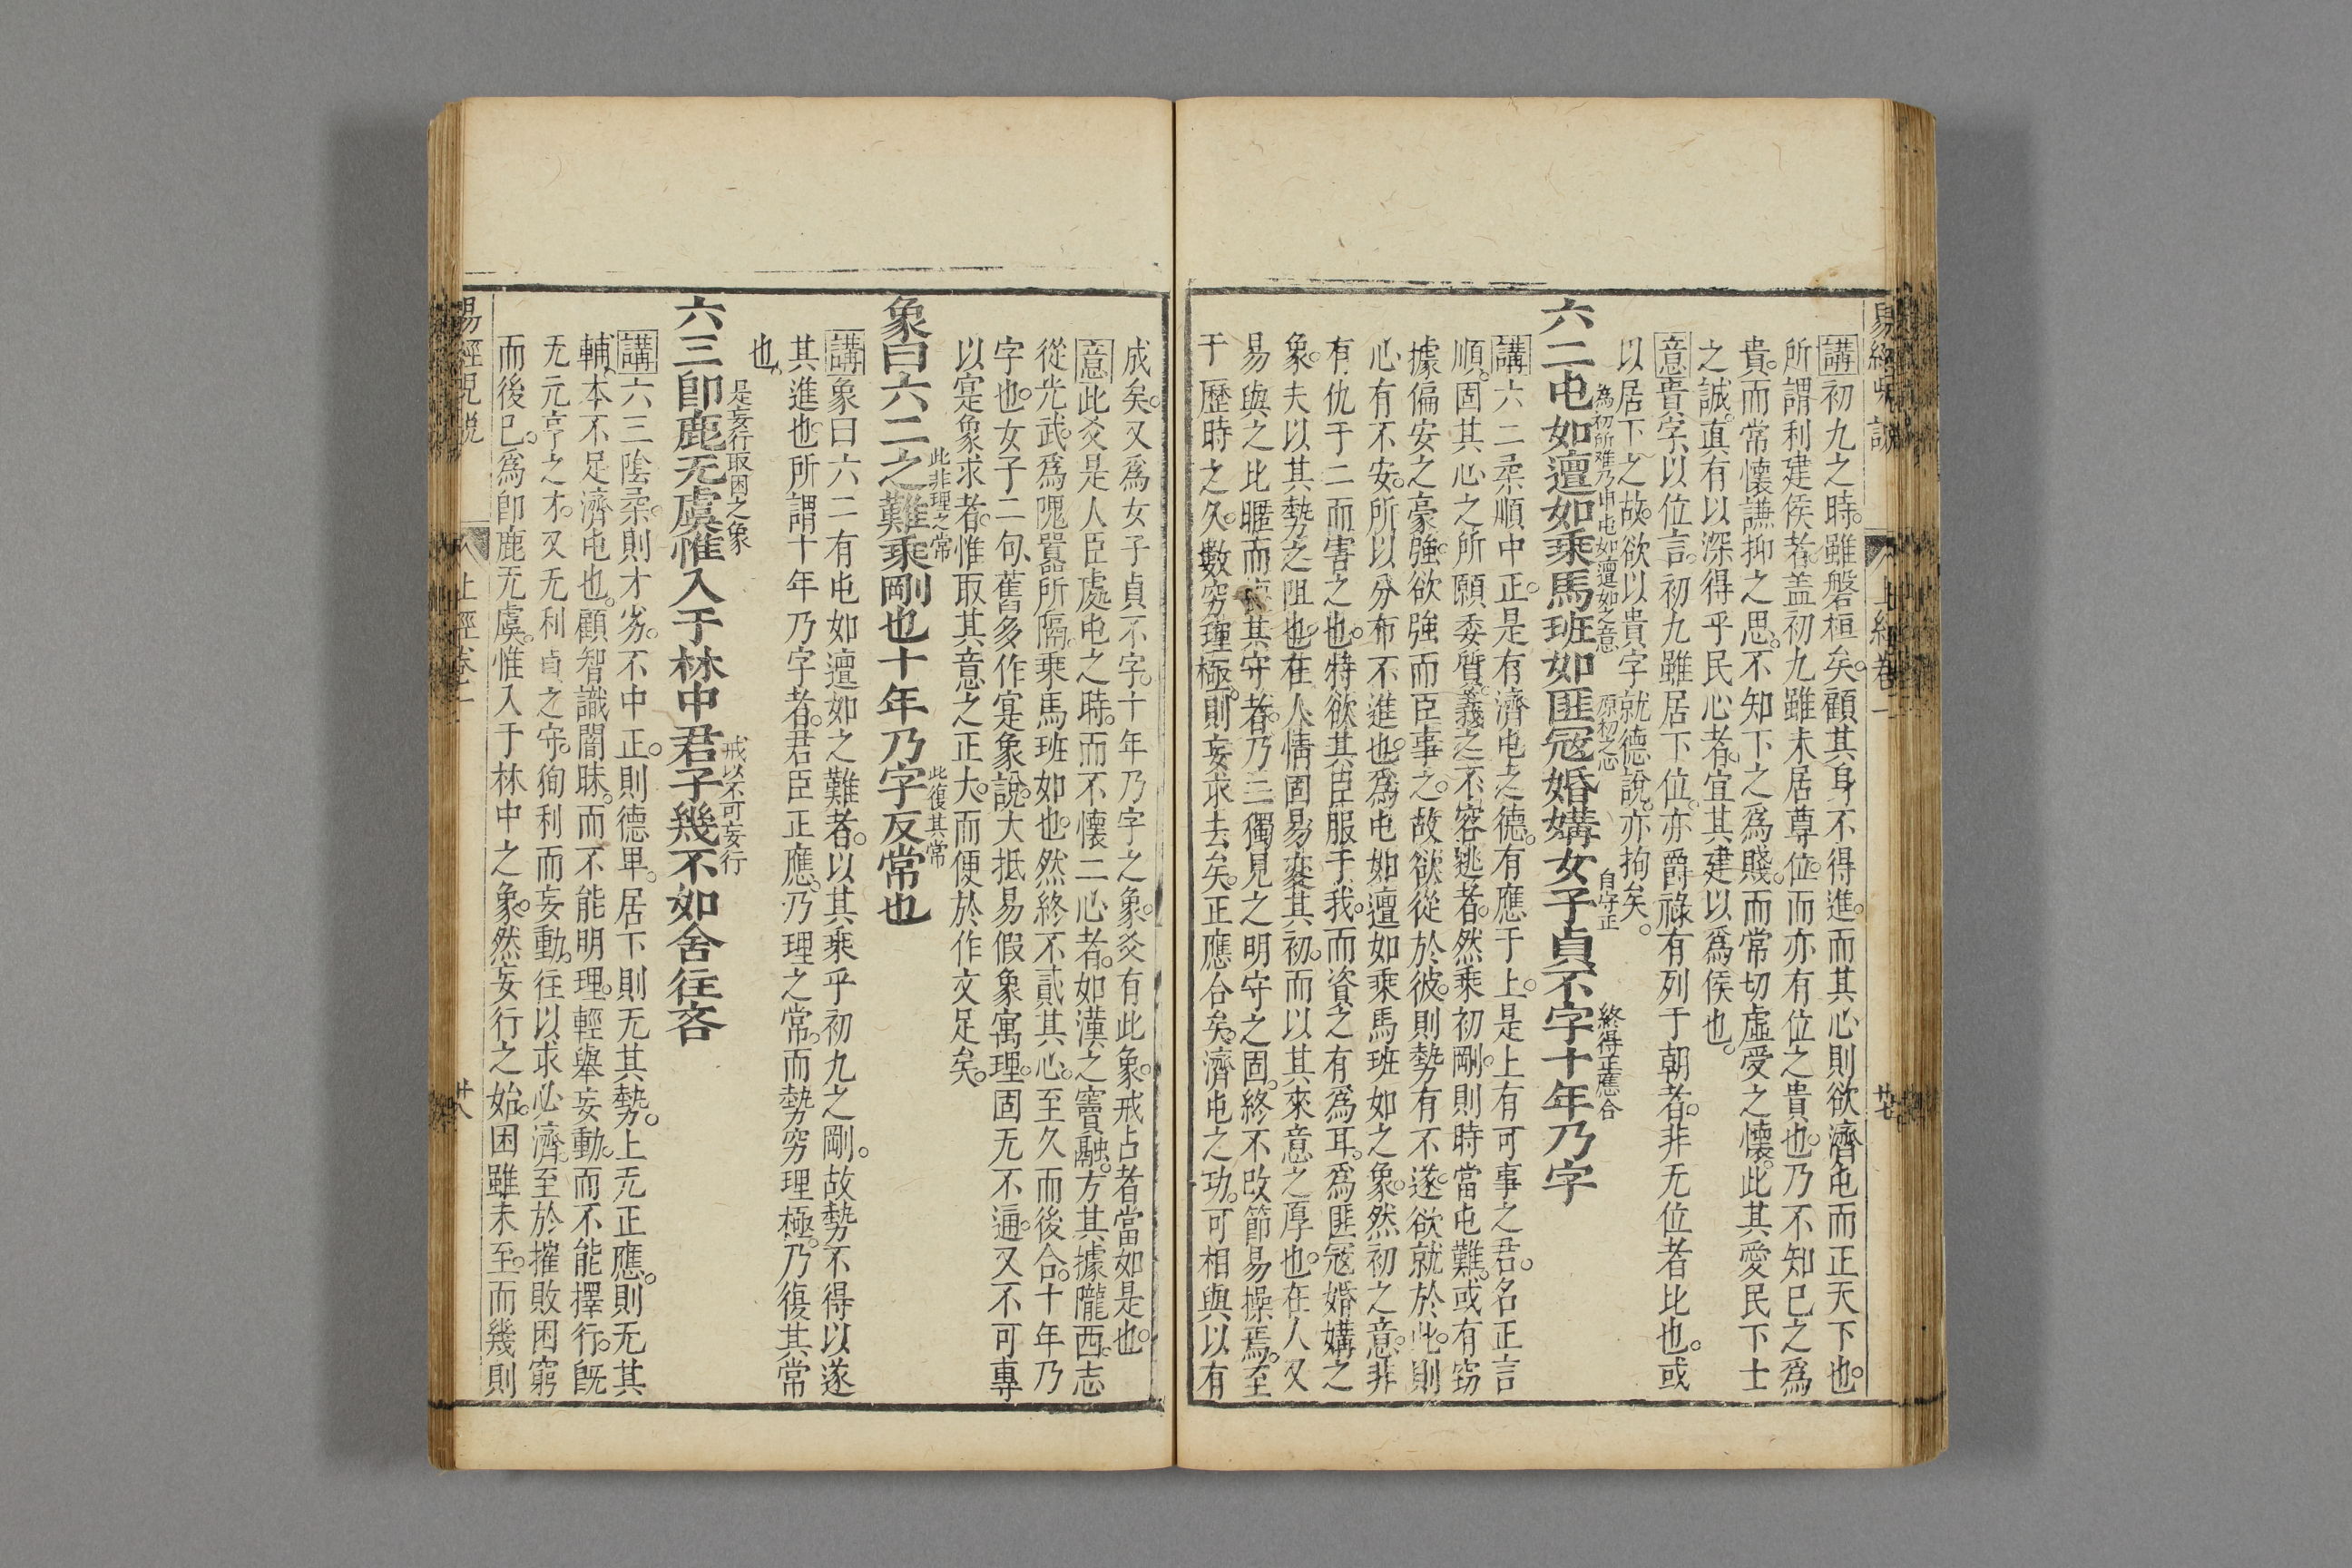 講初九之時。雖磐桓矣。顧其身不得進。而其心則欲濟屯而正天下也。
所謂利建侯者。盖初九雖未居尊位。而亦有位之貴也。乃不知巳之爲
貴。而常懷謙抑之思。不知下之爲賤。而常切虛受之懷。此其愛民下士
之誠。真有以深得乎民心者。宜其建以爲侯也。
意貴字。以位言。初九雖居下位。亦爵祿有列于朝者。非无位者比也。或
以居下之故。欲以貴字就德說。亦拘矣。
為初所难乃屯屯如邅如之意
原初之心
自守正
終得正應合
六二屯如邅如乘馬班如匪寇婚媾女子貞不字十年乃字
講六二柔順中正。是有濟屯之德。有應于上。是上有可事之君。名正言
順。固其心之所願委質。義之不容逃者。然乘初剛。則時當屯難。或有窃
據偏安之豪強。欲強而臣事之。故欲從於彼。則勢有不遂。欲就於此。則
心有不安。所以分布不進也。爲屯如邅如乘馬班如之象。然初之意。非
有仇于二而害之也。特欲其臣服于我。而資之有爲耳。爲匪寇婚媾之
象。夫以其勢之阻也。在人情固易變其初。而以其來意之厚也。在人又
易與之比暱而其守者。乃三獨見之明。守之固。終不改節易操焉。至
于歷時之久。數窮理極。則妄求去矣。正應合矣。濟屯之功。可相與以有
成矣。又爲女子貞不字。十年乃字之象。爻有此象。戒占者當如是也。
意此爻是人臣處屯之時。而不懷二心者。如漢之竇融。方其據隴西。志
從光武。爲隗囂所隔。乘馬班如也。然終不貳其心。至久而後合。十年乃
字也。女子二句。舊多作寔象說。大抵易假象寓理。固无不通。又不可專
以寔象求者。惟取其意之正大。而便於作文足矣。
此非理之常
此復其常
象曰六二之難乘剛也十年乃字反常也
講象曰六二有屯如邅如之難者。以其乘乎初九之剛。故勢不得以遂
其進也。所謂十年乃字者。君臣正應。乃理之常。而勢穷理極。乃復其常
也。
是妄行取困之象
戒以不可妄行
六三卽鹿无虞惟入于林中君子幾不如舍往吝
講六三陰柔。則才劣。不中正。則德卑。居下則无其勢。上无正應。則无其
輔。本不足濟屯也。顧智識闇昧。而不能明理。輕舉妄動。而不能擇行。旣
无元亨之才。又无利貞之守。徇利而妄動。往以求必濟。至於摧敗困窮
而後巳。爲卽鹿无虞。惟入于林中之象。然妄行之始。困雖未至。而幾則
易經 說
上經卷一
廿七
廿八